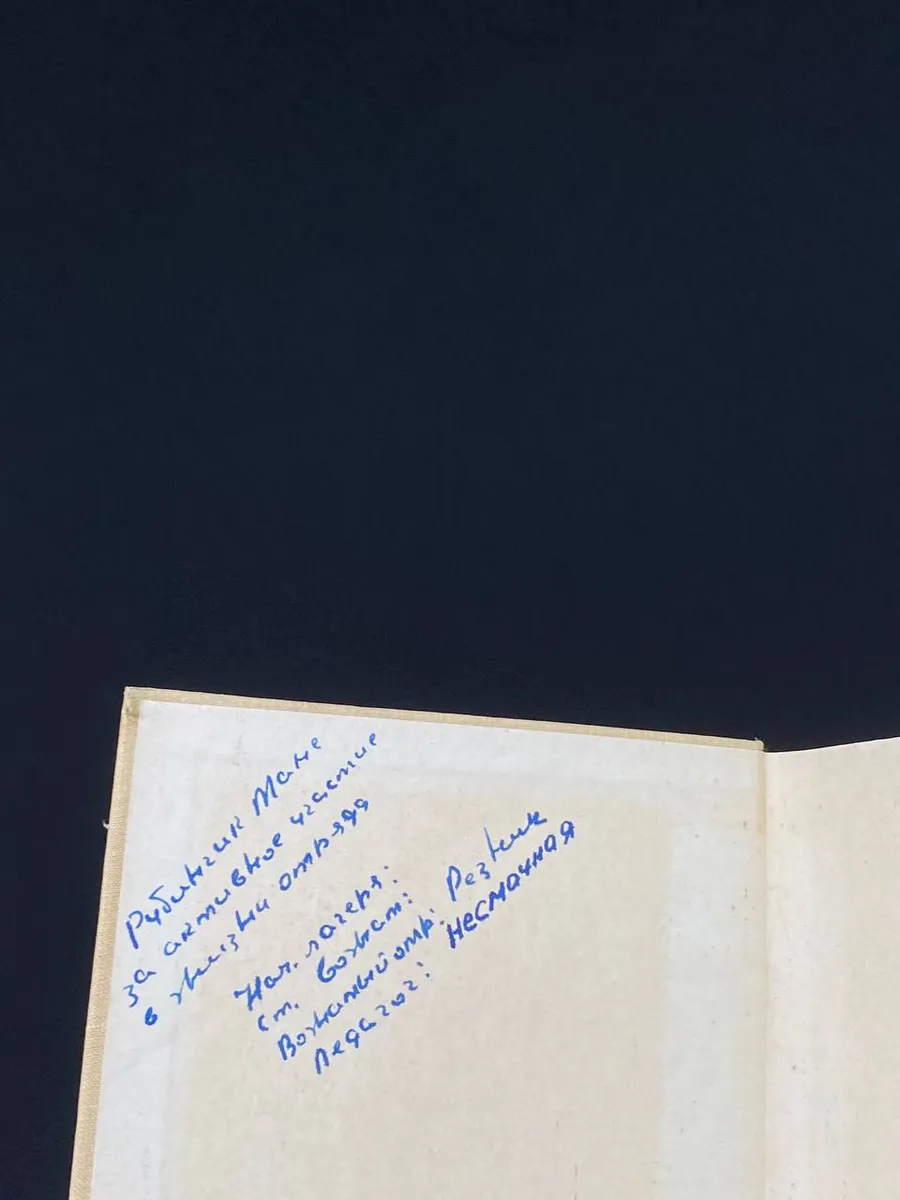 Рубинчик Мане
за активное участие
в жизни отряда
Нач. лагеря:
Ст. вожат:
Вожатый отр. Резник
Педагог: Несмачная